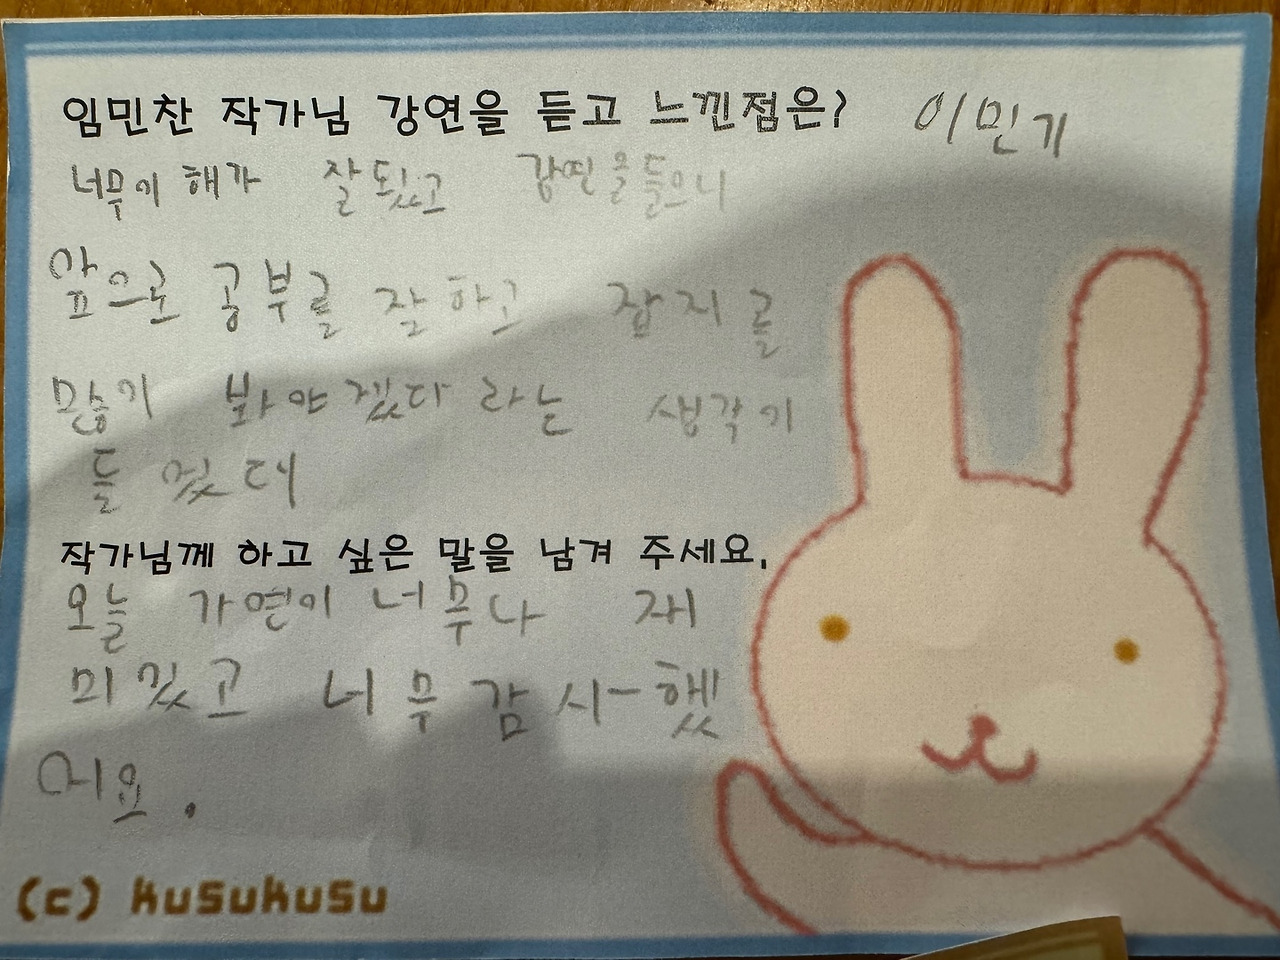 임민찬 작가님 강연을 듣고 느낀점은? 이민기
너무이해가 잘됬고 강연을들으니
앞으로 공부를 잘하고 잡지를
많이 봐야겠다 라는 생각이
들었다
작가님께 하고 싶은 말을 남겨 주세요.
오늘 가연이 너무나 재
미있고 너무 감사했
어요.
(c) kusukusu